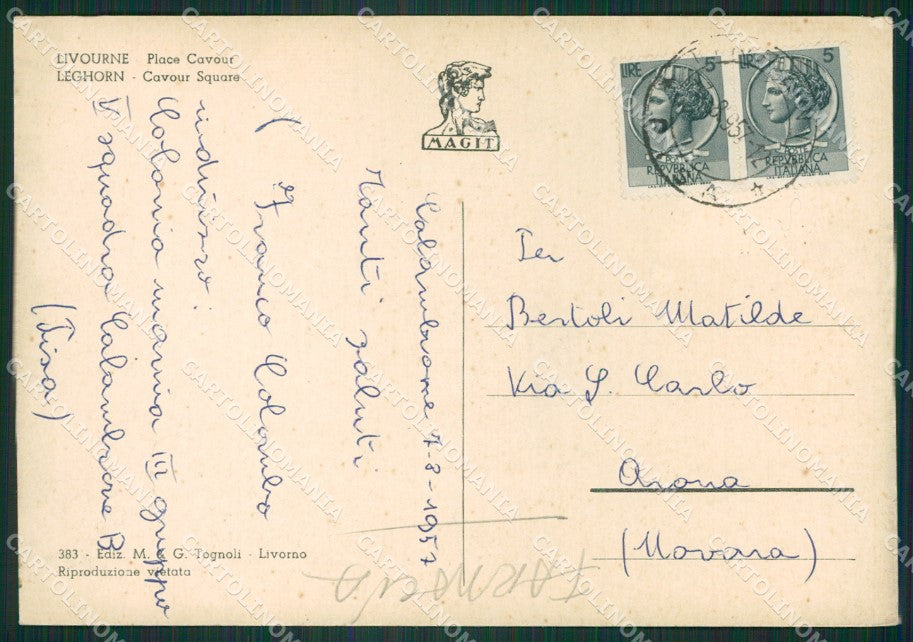 LIVOURNE Place Cavour
LEGHORN - Cavour Square
MAGIT
LIRE 5
LIRE 5
REPVBBLICA
ITALIANA
REPVBBLICA
ITALIANA
Calambrone 7-8-1957
Tanti saluti
Franco Colombo
indirizzo:
Colonia marina III gruppo
V squadra Calambrone B
(Pisa)
Per
Bertoli Matilde
Via S. Carlo
Arona
(Novara)
383 - Ediz. M. & G. Tognoli - Livorno
Riproduzione vietata
CARTOLINOMANIA